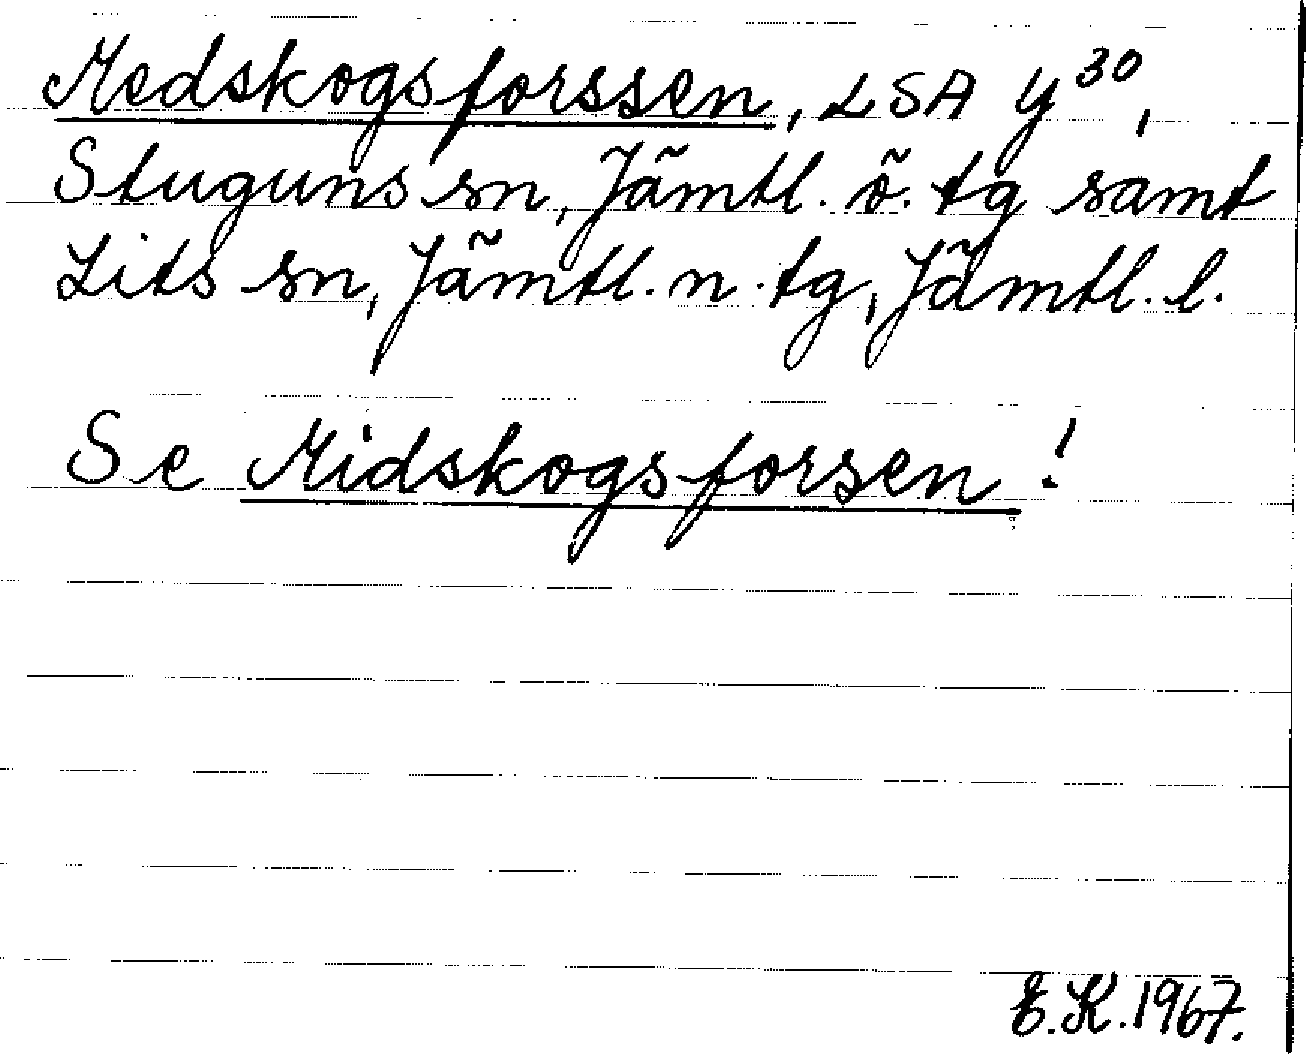 Medskogsforssen, LSA Y30,
Stuguns sn, Jämtl. ö. tg samt
Lits sn, Jämtl. n. tg, Jämtl. l.
Se Midskogsforsen!
E.K. 1967.